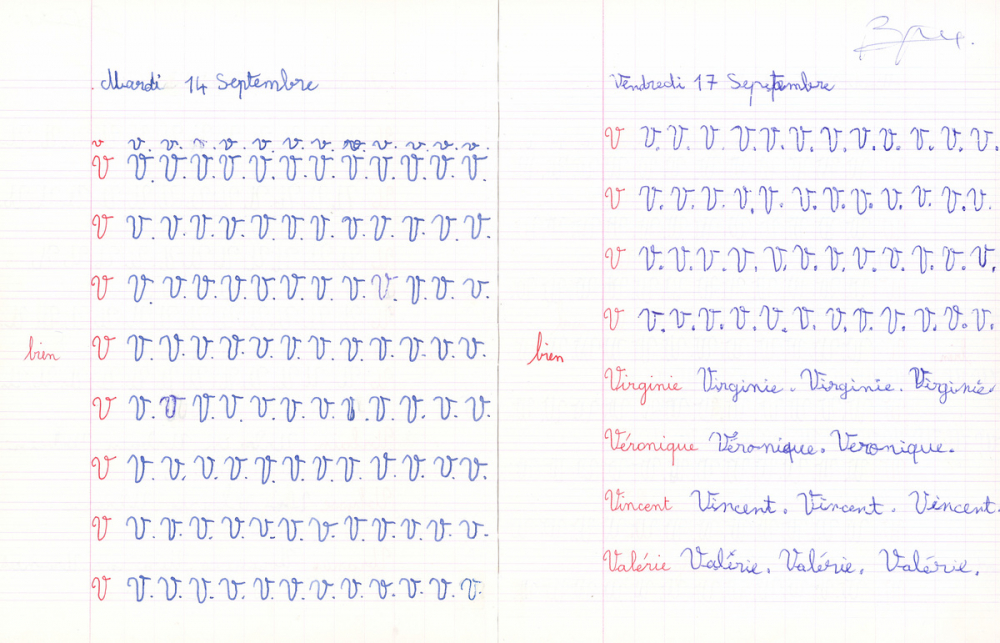 Mardi 14 Septembre
v v. v. v. v. v. v. v. v. v. v. v. v.
V V. V. V. V. V. V. V. V. V. V. V. V.
V V. V. V. V. V. V. V. V. V. V. V. V.
V V. V. V. V. V. V. V. V. V. V. V. V.
bien V V. V. V. V. V. V. V. V. V. V. V. V.
V V. V. V. V. V. V. V. V. V. V. V. V.
V V. V. V. V. V. V. V. V. V. V. V. V.
V V. V. V. V. V. V. V. V. V. V. V. V.
V V. V. V. V. V. V. V. V. V. V. V. V.
Vendredi 17 Septembre
V V. V. V. V. V. V. V. V. V. V. V. V.
V V. V. V. V. V. V. V. V. V. V. V. V.
V V. V. V. V. V. V. V. V. V. V. V. V.
V V. V. V. V. V. V. V. V. V. V. V. V.
bien
Virginie Virginie. Virginie. Virginie
Véronique Véronique. Veronique.
Vincent Vincent. Vincent. Vincent.
Valérie Valérie. Valérie. Valérie.